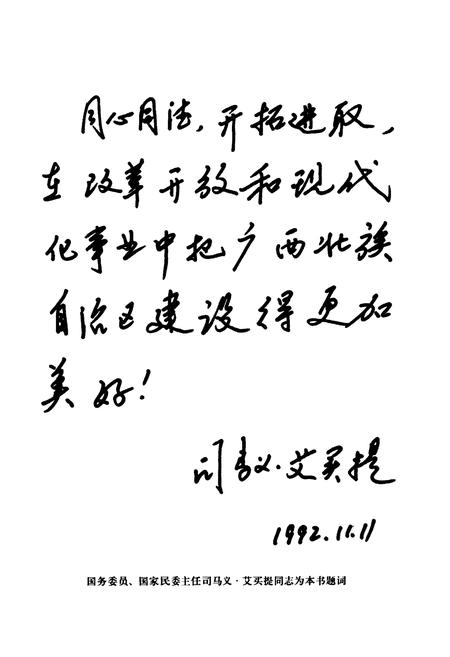 同心同德,开拓进取,
在改革开放和现代
化事业中把广西壮族
自治区建设得更加
美好!
司马义·艾买提
1992.11.11
国务委员、国家民委主任司马义·艾买提同志为本书题词